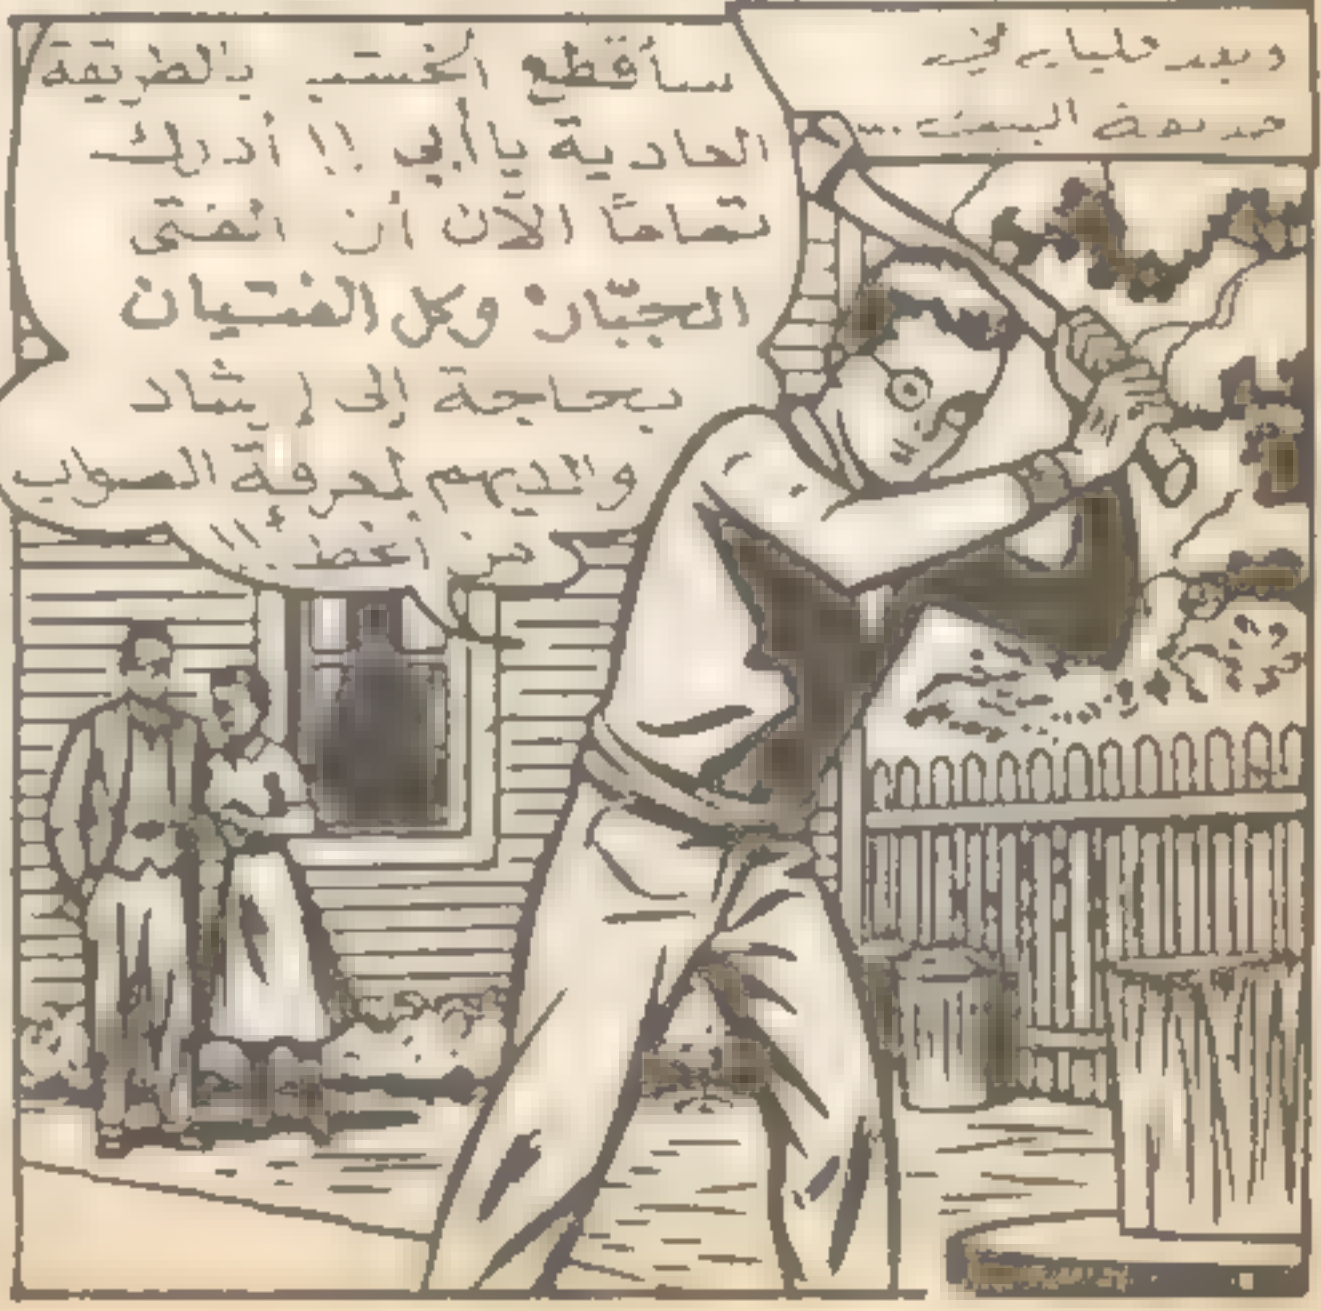 وبعد قليل في
حديقة البيت ...
سأقطع الخشب بالطريقة
العادية يا أبي !! أدرك
تماماً الآن أن الفتى
الجبّار وكل الفتيان
بحاجة إلى إرشاد
والديهم لمعرفة الصواب
من الخطأ !!